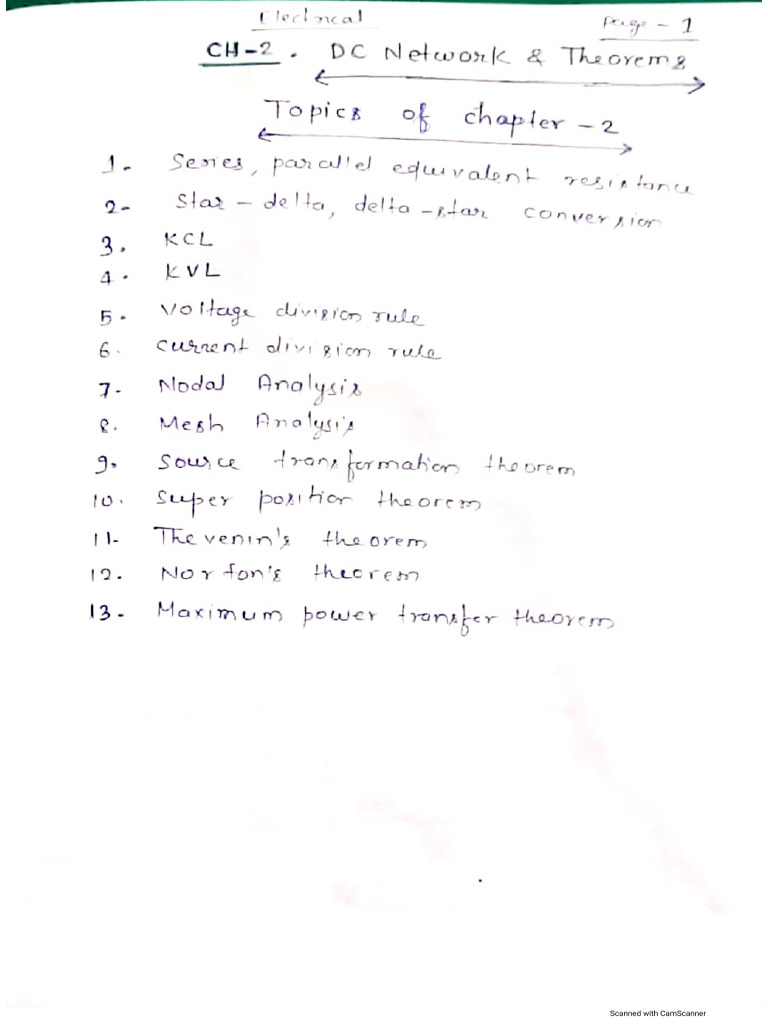 Electrical
Page - 1
CH-2. DC Network & Theorems
Topics of chapter - 2
1- Series, parallel equivalent resistance
2- Star - delta, delta - star conversion
3. KCL
4. KVL
5. Voltage division rule
6. current division rule
7- Nodal Analysis
8. Mesh Analysis
9. Source transformation theorem
10. Super position theorem
11- Thevenin's theorem
12. Norton's theorem
13- Maximum power transfer theorem
Scanned with CamScanner